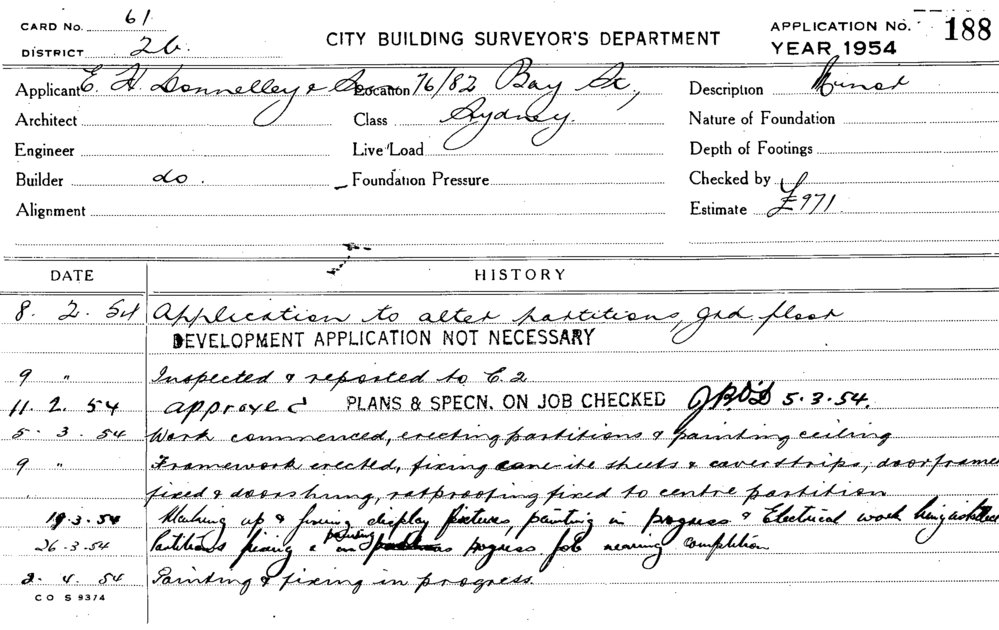 CARD No. 61
DISTRICT 26.
CITY BUILDING SURVEYOR'S DEPARTMENT
APPLICATION No. 188
YEAR 1954
Applicant E. H. Donnelley & Son Location 76/82 Bay St, Description Minor
Architect Class Sydney. Nature of Foundation
Engineer Live Load Depth of Footings
Builder do. Foundation Pressure Checked by
Alignment Estimate £971.
DATE HISTORY
8. 2. 54 Application to alter partitions, grd floor
DEVELOPMENT APPLICATION NOT NECESSARY
9 " Inspected & reported to C. 2
11. 2. 54 approved PLANS & SPECN. ON JOB CHECKED 5.3.54.
5. 3. 54 Work commenced, erecting partitions & painting ceiling
9 " Framework erected, fixing cane-ite sheets & coverstrips, doorframes
fixed & doors hung, ratproofing fixed to centre partition
19.3.54 Making up & fixing display fixtures, painting in progress & Electrical work being
26.3.54 Partitions fixing & painting in progress job nearing completion
2. 4. 54 Painting & fixing in progress.
CO S 9374